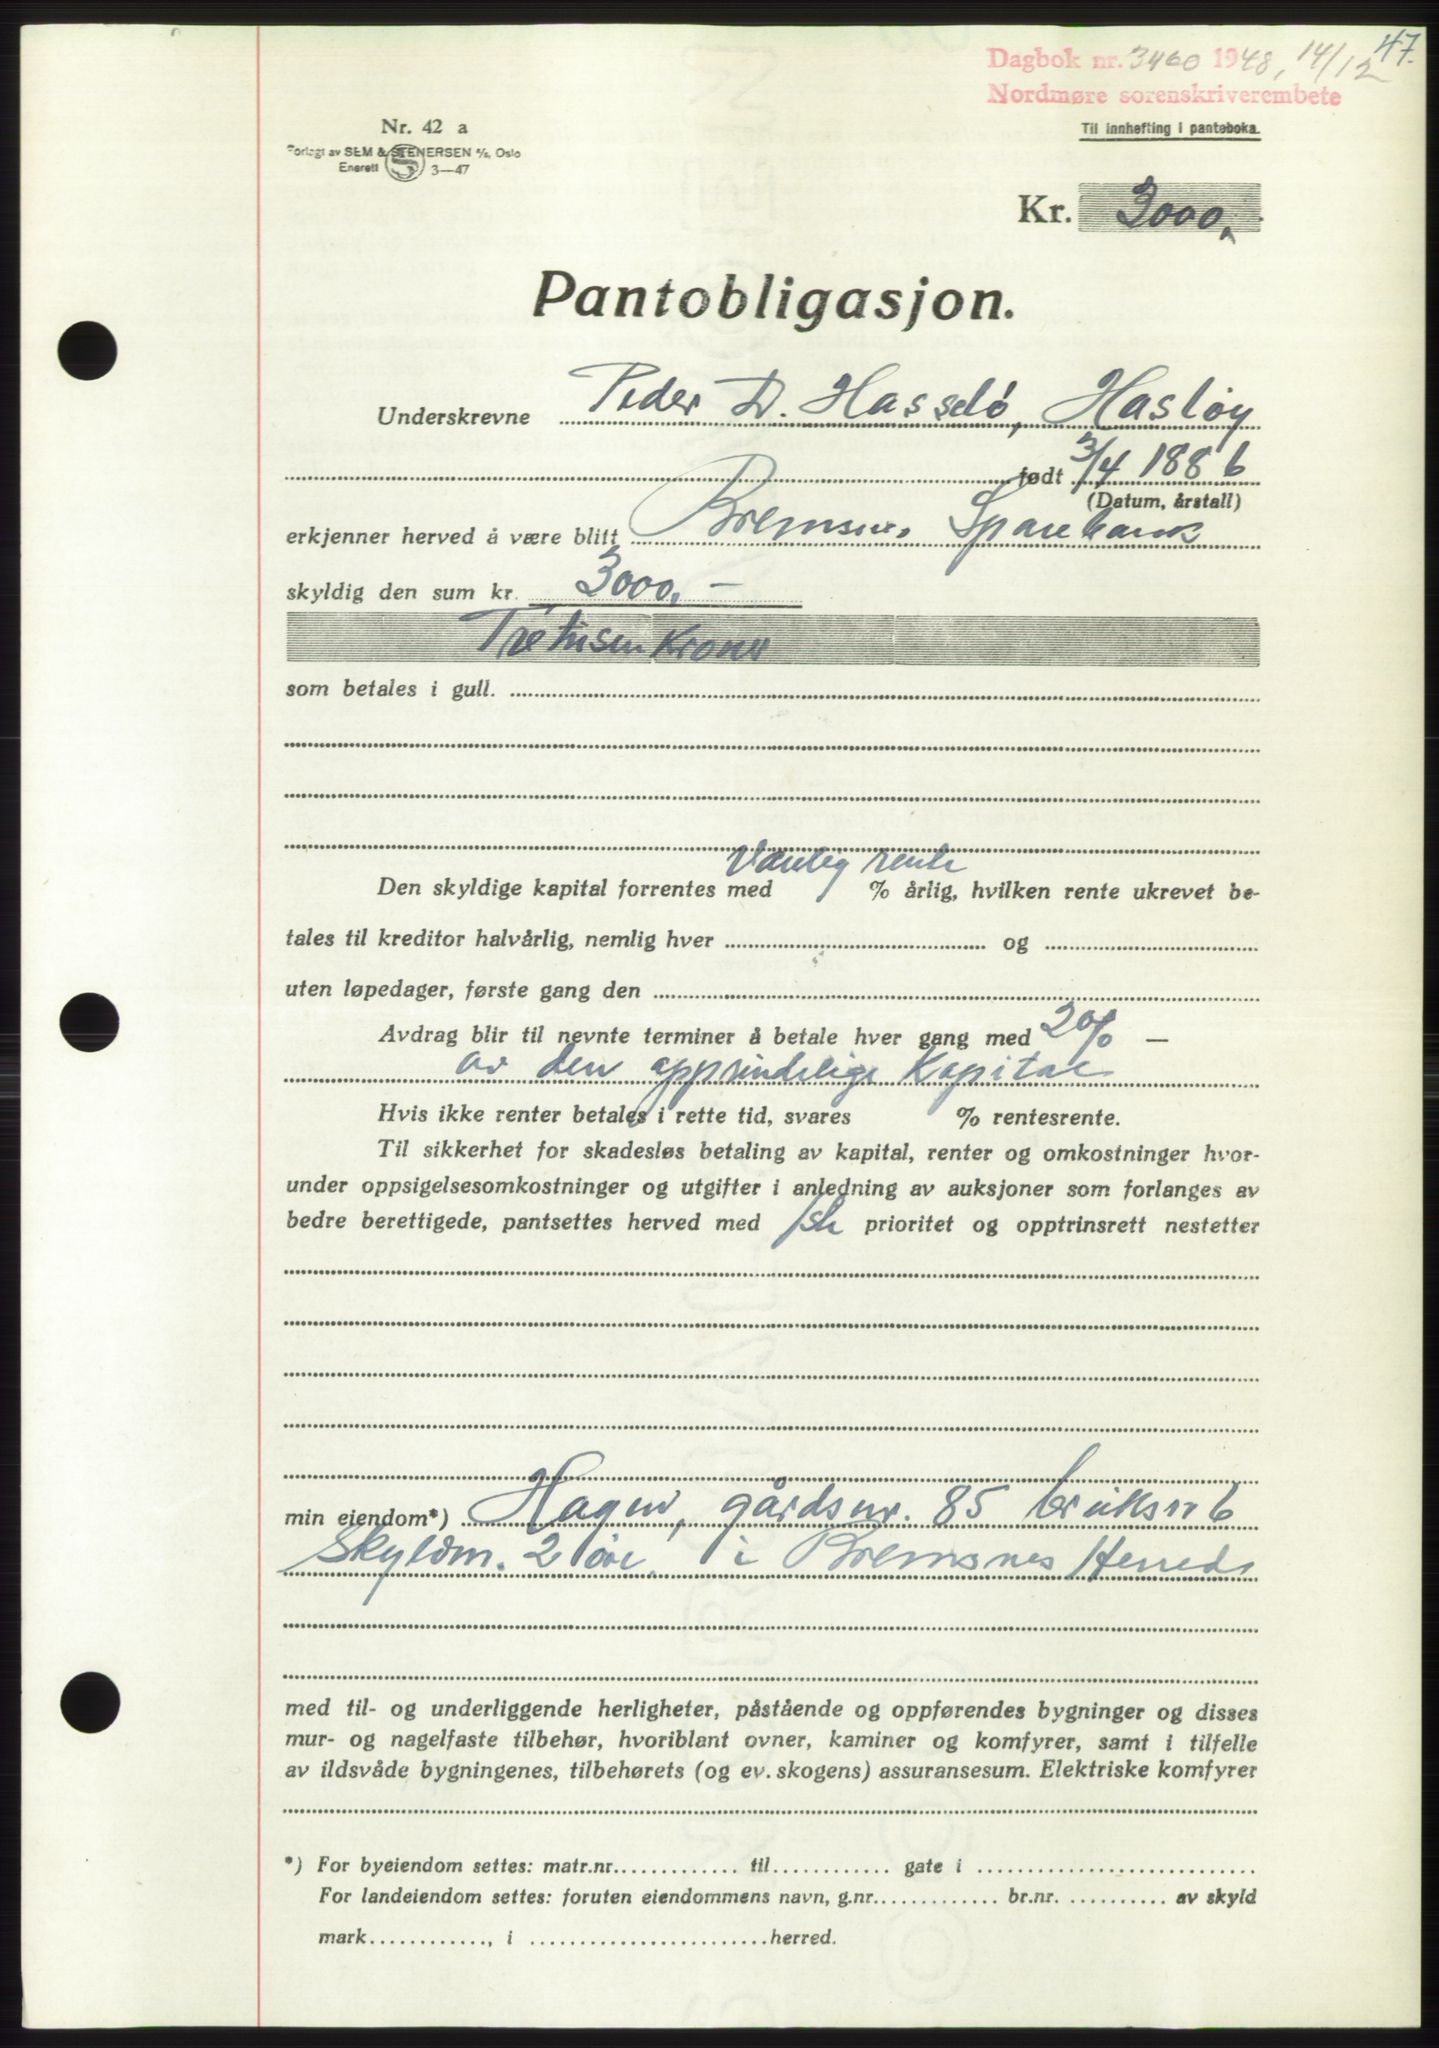 47.
Dagbok nr. 3460 1948, 14/12
Nordmøre sorenskriverembete
Til innhefting i panteboka.
Nr. 42 a
Forlagt av SEM & STENERSEN A/S, Oslo
Enerett S 3—47
Kr. 3000,
Pantobligasjon.
Underskrevne Peder D. Hasselø, Hasløy
født 3/4 1886
(Datum, årstall)
erkjenner herved å være blitt Bremsnes Sparebank
skyldig den sum kr. 3000,—
Tretusen Kroner
som betales i gull.
Vanlig rente
Den skyldige kapital forrentes med % årlig, hvilken rente ukrevet be-
tales til kreditor halvårlig, nemlig hver og
uten løpedager, første gang den
Avdrag blir til nevnte terminer å betale hver gang med 2% —
av den opprindelige Kapital
Hvis ikke renter betales i rette tid, svares % rentesrente.
Til sikkerhet for skadesløs betaling av kapital, renter og omkostninger hvor-
under oppsigelsesomkostninger og utgifter i anledning av auksjoner som forlanges av
bedre berettigede, pantsettes herved med 1ste prioritet og opptrinsrett nestetter
min eiendom*) Hagen, gårdsnr. 85 bruksnr 6
Skyldm. 2 øre, i Bremsnes Herred
med til- og underliggende herligheter, påstående og oppførendes bygninger og disses
mur- og nagelfaste tilbehør, hvoriblant ovner, kaminer og komfyrer, samt i tilfelle
av ildsvåde bygningenes, tilbehørets (og ev. skogens) assuransesum. Elektriske komfyrer
*) For byeiendom settes: matr.nr. til gate i
For landeiendom settes: foruten eiendommens navn, g.nr. br.nr. av skyld
mark , i herred.